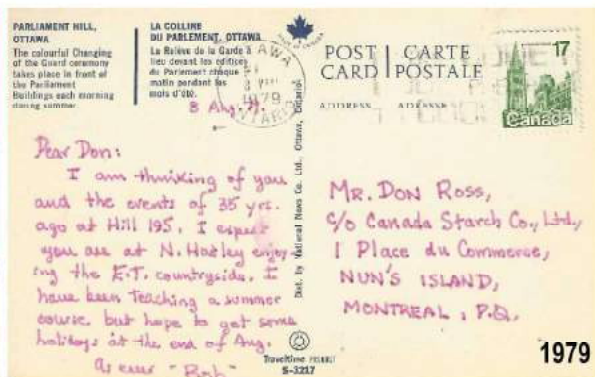 PARLIAMENT HILL,
OTTAWA
The colourful Changing
of the Guard ceremony
takes place in front of
the Parliament
Buildings each morning
during summer
LA COLLINE
DU PARLEMENT, OTTAWA
La Relève de la Garde a
lieu devant les édifices
du Parlement chaque
matin pendant les
mois d'été.
8 Aug 79
Dear Don:
I am thinking of you
and the events of 35 yrs.
ago at Hill 195. I expect
you are at N. Hatley enjoy-
ing the E.T. countryside. I
have been teaching a summer
course but hope to get some
holidays at the end of Aug.
As ever "Bob"
Dist. by National News Co. Ltd., Ottawa, Ontario
Traveltime
S-3217
OTTAWA
1979
ONTARIO
POST CARD
CARTE POSTALE
ADDRESS
ADRESSE
17
Canada
MR. DON ROSS,
c/o Canada Starch Co., Ltd.,
1 Place du Commerce,
NUN'S ISLAND,
MONTREAL, P.Q.
1979